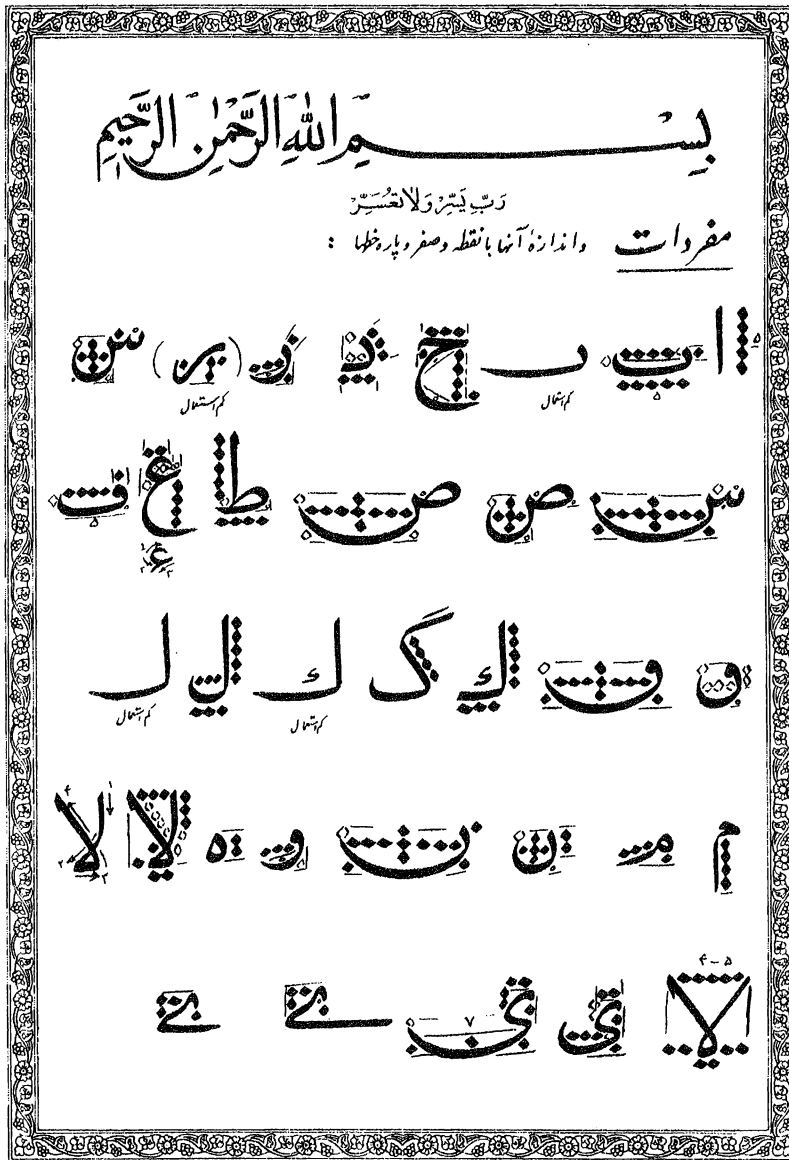 بِسْمِ اللهِ الرَّحْمٰنِ الرَّحِيمِ
رَبِّ يَسِّرْ وَلَا تُعَسِّرْ
مفردات و اندازهٔ آنها با نقطه و صفر و پاره خطها :
ا ب ب ح د ر (ر) س
کم استعمال کم استعمال
س ص ص ط ع ف
ء
۱ ۲ ۳
و ق ك گ ك ل ل
کم استعمال کم استعمال
م م ن ن و ه لا لا
۱ ۲ ۳ ۴
۴ - ۵
لا ی ی ے ے
۷